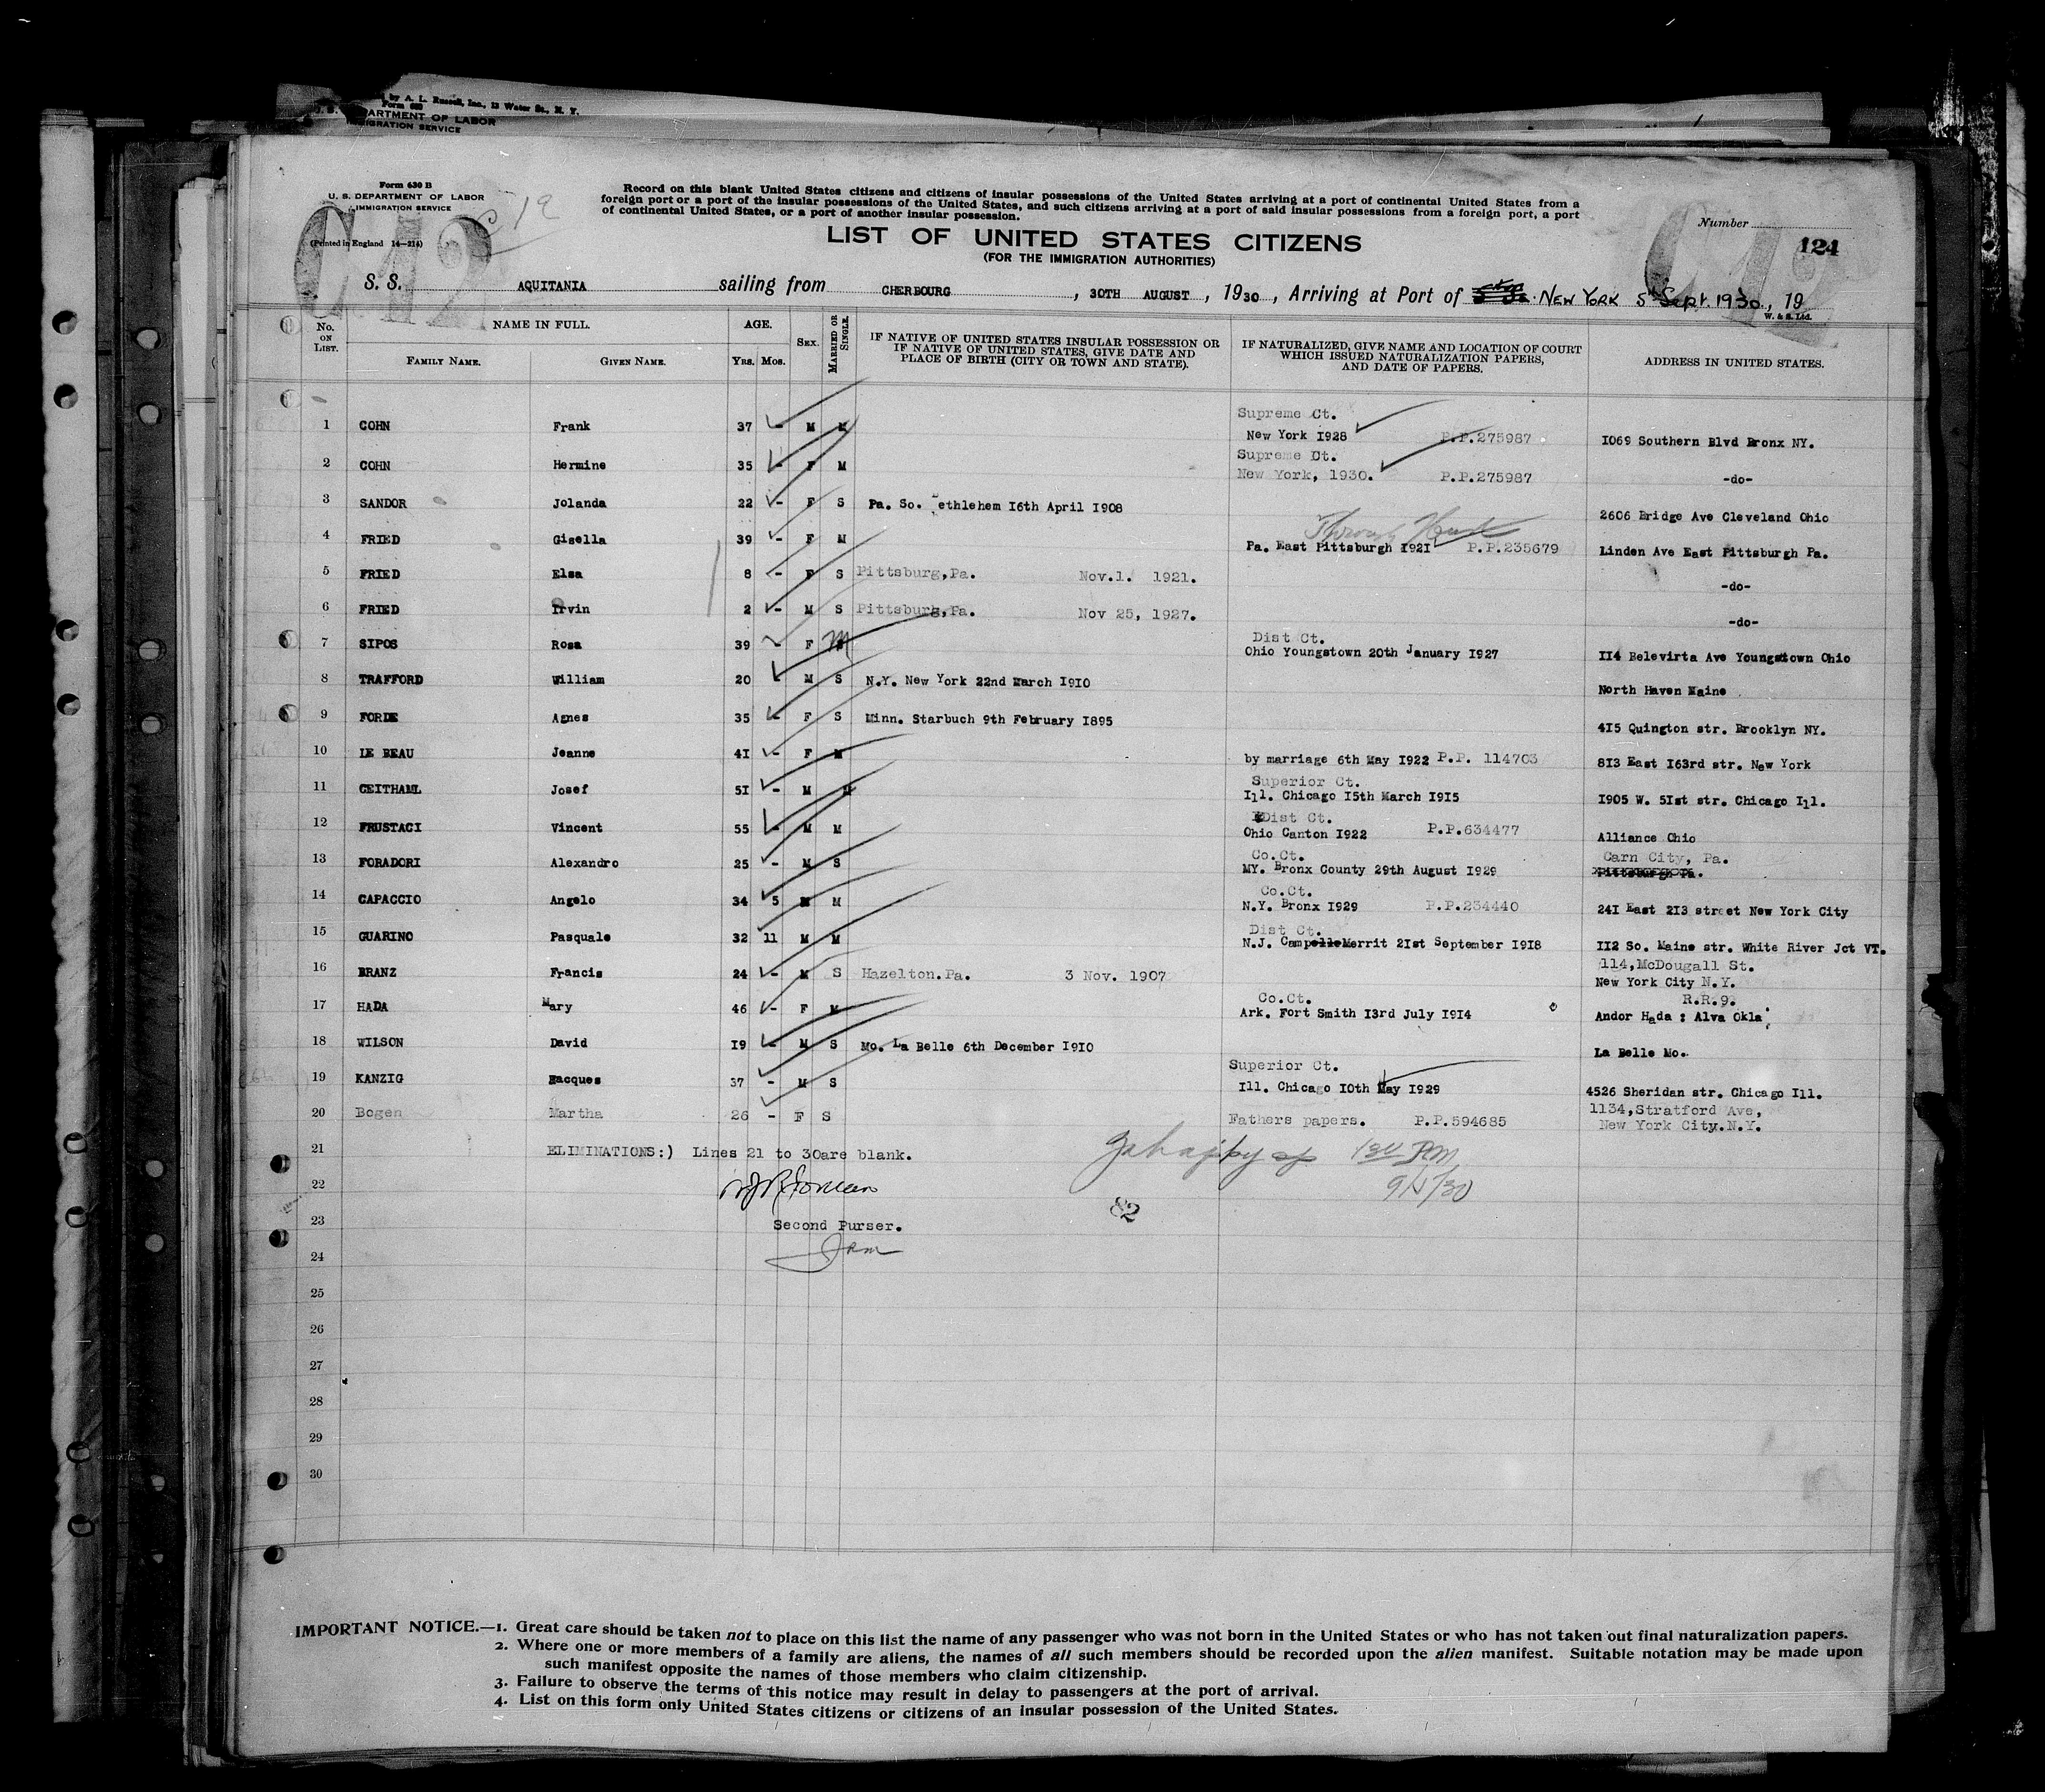 by A. L. Russell, Inc., 13 Water St., N. Y.
Form 630
DEPARTMENT OF LABOR
IMMIGRATION SERVICE
Form 630 B
U. S. DEPARTMENT OF LABOR
IMMIGRATION SERVICE
(Printed in England 14—214)
C 12
Record on this blank United States citizens and citizens of insular possessions of the United States arriving at a port of continental United States from a
foreign port or a port of the insular possessions of the United States, and such citizens arriving at a port of said insular possessions from a foreign port, a port
of continental United States, or a port of another insular possession.
Number
124
C12
C12
LIST OF UNITED STATES CITIZENS
(FOR THE IMMIGRATION AUTHORITIES)
S. S. AQUITANIA sailing from CHERBOURG, 30TH AUGUST, 1930, Arriving at Port of NEW YORK 5th Sept. 1930, 19
W. & S. Ltd.
No. ON LIST. NAME IN FULL. AGE. SEX. MARRIED OR SINGLE. IF NATIVE OF UNITED STATES INSULAR POSSESSION OR IF NATIVE OF UNITED STATES, GIVE DATE AND PLACE OF BIRTH (CITY OR TOWN AND STATE). IF NATURALIZED, GIVE NAME AND LOCATION OF COURT WHICH ISSUED NATURALIZATION PAPERS, AND DATE OF PAPERS. ADDRESS IN UNITED STATES.
FAMILY NAME. GIVEN NAME. YRS. MOS.
Supreme Ct.
1 COHN Frank 37 - M M New York 1928 P.P.275987 1069 Southern Blvd Bronx NY.
Supreme Ct.
2 COHN Hermine 35 - F M New York, 1930. P.P.275987 -do-
3 SANDOR Jolanda 22 - F S Pa. So. Bethlehem 16th April 1908 2606 Bridge Ave Cleveland Ohio
4 FRIED Gisella 39 - F M Pa. East Pittsburgh 1921 P.P.235679 Linden Ave East Pittsburgh Pa.
5 FRIED Elsa 8 - F S Pittsburg,Pa. Nov.1. 1921. -do-
6 FRIED Irvin 2 - M S Pittsburg,Pa. Nov 25, 1927. -do-
Dist Ct.
7 SIPOS Rosa 39 - F M Ohio Youngstown 20th January 1927 114 Belevirta Ave Youngstown Ohio
8 TRAFFORD William 20 - M S N.Y. New York 22nd March 1910 North Haven Maine
9 FORDE Agnes 35 - F S Minn. Starbuch 9th February 1895 415 Quington str. Brooklyn NY.
10 LE BEAU Jeanne 41 - F M by marriage 6th May 1922 P.P. 114703 813 East 163rd str. New York
Superior Ct.
11 CEITHAML Josef 51 - M M Ill. Chicago 15th March 1915 1905 W. 51st str. Chicago Ill.
Dist Ct.
12 FRUSTACI Vincent 55 - M M Ohio Canton 1922 P.P.634477 Alliance Ohio
Co.Ct. Carn City, Pa.
13 FORADORI Alexandro 25 - M S MY. Bronx County 29th August 1929 Pittsburgh Pa.
Co.Ct.
14 CAPACCIO Angelo 34 5 M M N.Y. Bronx 1929 P.P.234440 241 East 213 street New York City
Dist Ct.
15 GUARINO Pasquale 32 11 M M N.J. Camp Merrit 21st September 1918 112 So. Maine str. White River Jct VT.
16 BRANZ Francis 24 - M S Hazelton.Pa. 3 Nov. 1907 114,McDougall St.
New York City N.Y.
Co.Ct. R.R.9.
17 HADA Mary 46 - F M Ark. Fort Smith 13rd July 1914 Andor Hada : Alva Okla
18 WILSON David 19 - M S Mo. La Belle 6th December 1910 La Belle Mo.
Superior Ct.
19 KANZIG Jacques 37 - M S Ill. Chicago 10th May 1929 4526 Sheridan str. Chicago Ill.
20 Bogen Martha 26 - F S Fathers papers. P.P.594685 1134,Stratford Ave,
New York City.N.Y.
21 ELIMINATIONS:) Lines 21 to 30are blank.
22
82
23 Second Purser.
24
25
26
27
28
29
30
IMPORTANT NOTICE.—1. Great care should be taken not to place on this list the name of any passenger who was not born in the United States or who has not taken out final naturalization papers.
2. Where one or more members of a family are aliens, the names of all such members should be recorded upon the alien manifest. Suitable notation may be made upon
such manifest opposite the names of those members who claim citizenship.
3. Failure to observe the terms of this notice may result in delay to passengers at the port of arrival.
4. List on this form only United States citizens or citizens of an insular possession of the United States.